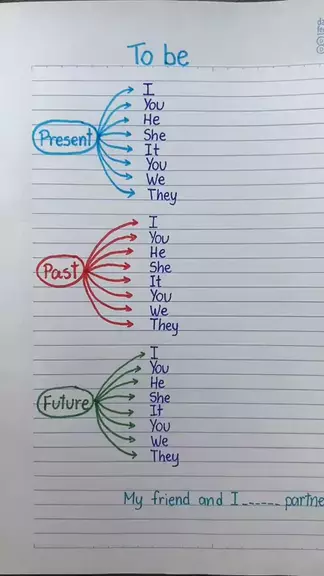 To be
Present
I
You
He
She
It
You
We
They
Past
I
You
He
She
It
You
We
They
Future
I
You
He
She
It
You
We
They
My friend and I ------ partne